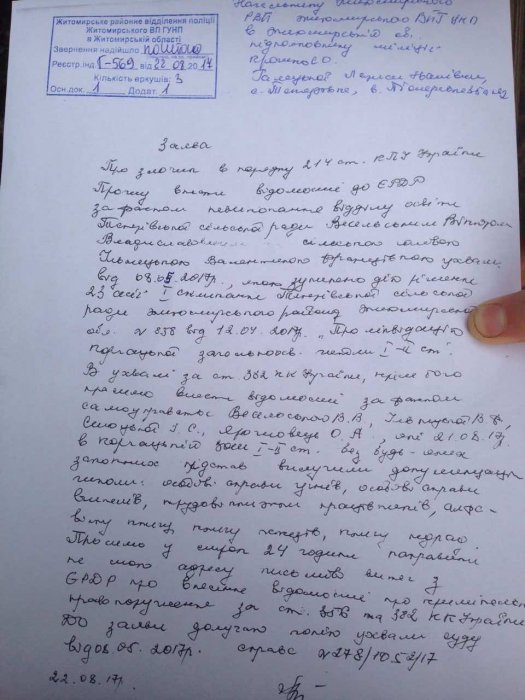 Житомирське районне відділення поліції
Житомирського ВП ГУНП
в Житомирській області
Звернення надійшло поштою
Реєстр.інд Г-569 від 22.08.2017
Кількість аркушів: 3
Осн.док. 1 Додат. 1
Начальнику Житомирського
РВП Житомирського ВП ГУНП
в Житомирській об.
підполковнику міліції
Галецької Лариси Іванівни,
Заява
Про злочин в порядку 214 ст. КПУ України
Прошу внести відомості до ЄРДР
за фактом невиконання відділу освіти
сільської ради Весельським Віктором
сільською головою
Ільницькою Валентиною Францівною ухвали
від 08.05.2017р., якою зупинено дію рішення
23 сесії І скликання сільської
ради Житомирського району Житомирської
обл. № 858 від 12.04.2017р. "Про ліквідацію
загальноосв. школи І-ІІ ст".
В ухвалі за ст. 382 КК України, крім того
просимо внести відомості за фактом
самоуправства Весельського В.В, Ільницької В.Ф,
І.С., Ярошовець О.А, які 21.08.17р.
в І-ІІ ст. без будь-яких
законних підстав вилучили документацію
школи: особові справи учнів, особові справи
вчителів, трудові книжки працівників, алфа-
вітну книгу, книгу наказів, книгу педрад.
Просимо у строк 24 години направити
на мою адресу письмово витяг з
ЄРДР про внесення відомостей про кримінальне
правопорушення за ст. 356 та 382 КК України
До заяви долучаю копію ухвали суду
від 08.05.2017р. справа №278/1052/17
22.08.17р.